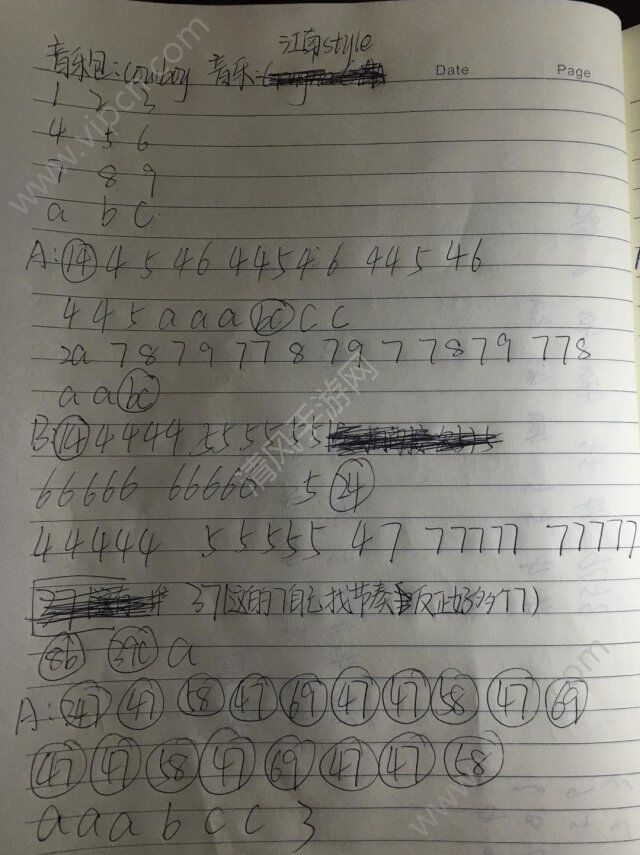 江南style
音乐包:cowboy 音乐:
Date Page
1 2 3
4 5 6
7 8 9
a b c
A:(14) 4 5 46 4454 6 44546
4 4 5 a a a (bc) c c
2a 7 8 7 9 7 7 8 7 9 7 7 8 7 9 7 7 8
a a (bc)
B:(14) 4 4 4 4 5 5 5 5 5 5
66666 66666 5 (24)
4 4 4 4 4 5 5 5 5 5 4 7 77777 77777
37(这的7自己找节奏 反正好多个7)
(8b) (39c) a
A:(247) (47) (58) (47) (69) (47) (47) (58) (47) (69)
(47) (47) (58) (47) (69) (47) (47) (58)
a a a b c c 3
www.vipcny.com
清风手游网